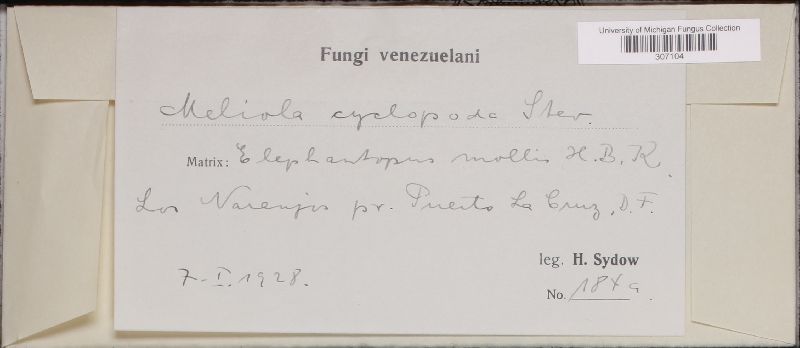 University of Michigan Fungus Collection
307104
Fungi venezuelani
Meliola cyclopoda Stev.
Matrix: Elephantopus mollis H.B.K.
Los Naranjos pr. Puerto La Cruz, D.F.
7.I.1928.
leg. H. Sydow
No. 184a.